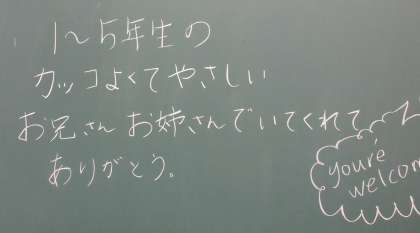 1～5年生の
カッコよくてやさしい
お兄さん お姉さんでいてくれて
ありがとう。
you're
welcom